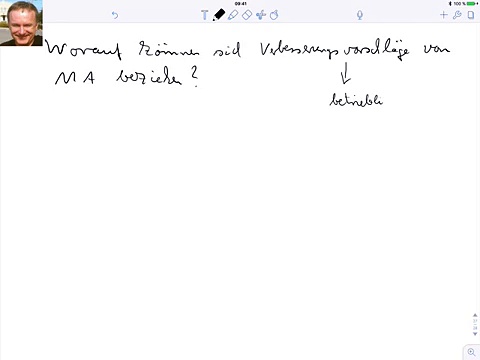 09:41
100 %
Worauf können sich Verbesserungsvorschläge von
MA beziehen?
betriebli